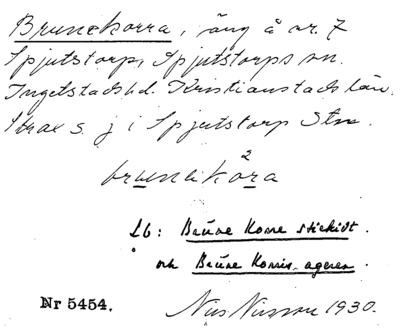 Brunekorra, äng å nr. 7
Spjutstorp, Spjutstorps sn.
Ingelstads hd. Kristianstads län.
Strax s. j i Spjutstorp Stn.
brunekåra
2
Lb: Brune Korre stickidt.
och Brune Korris ageren.
Nr 5454.
Nils Nilsson 1930.